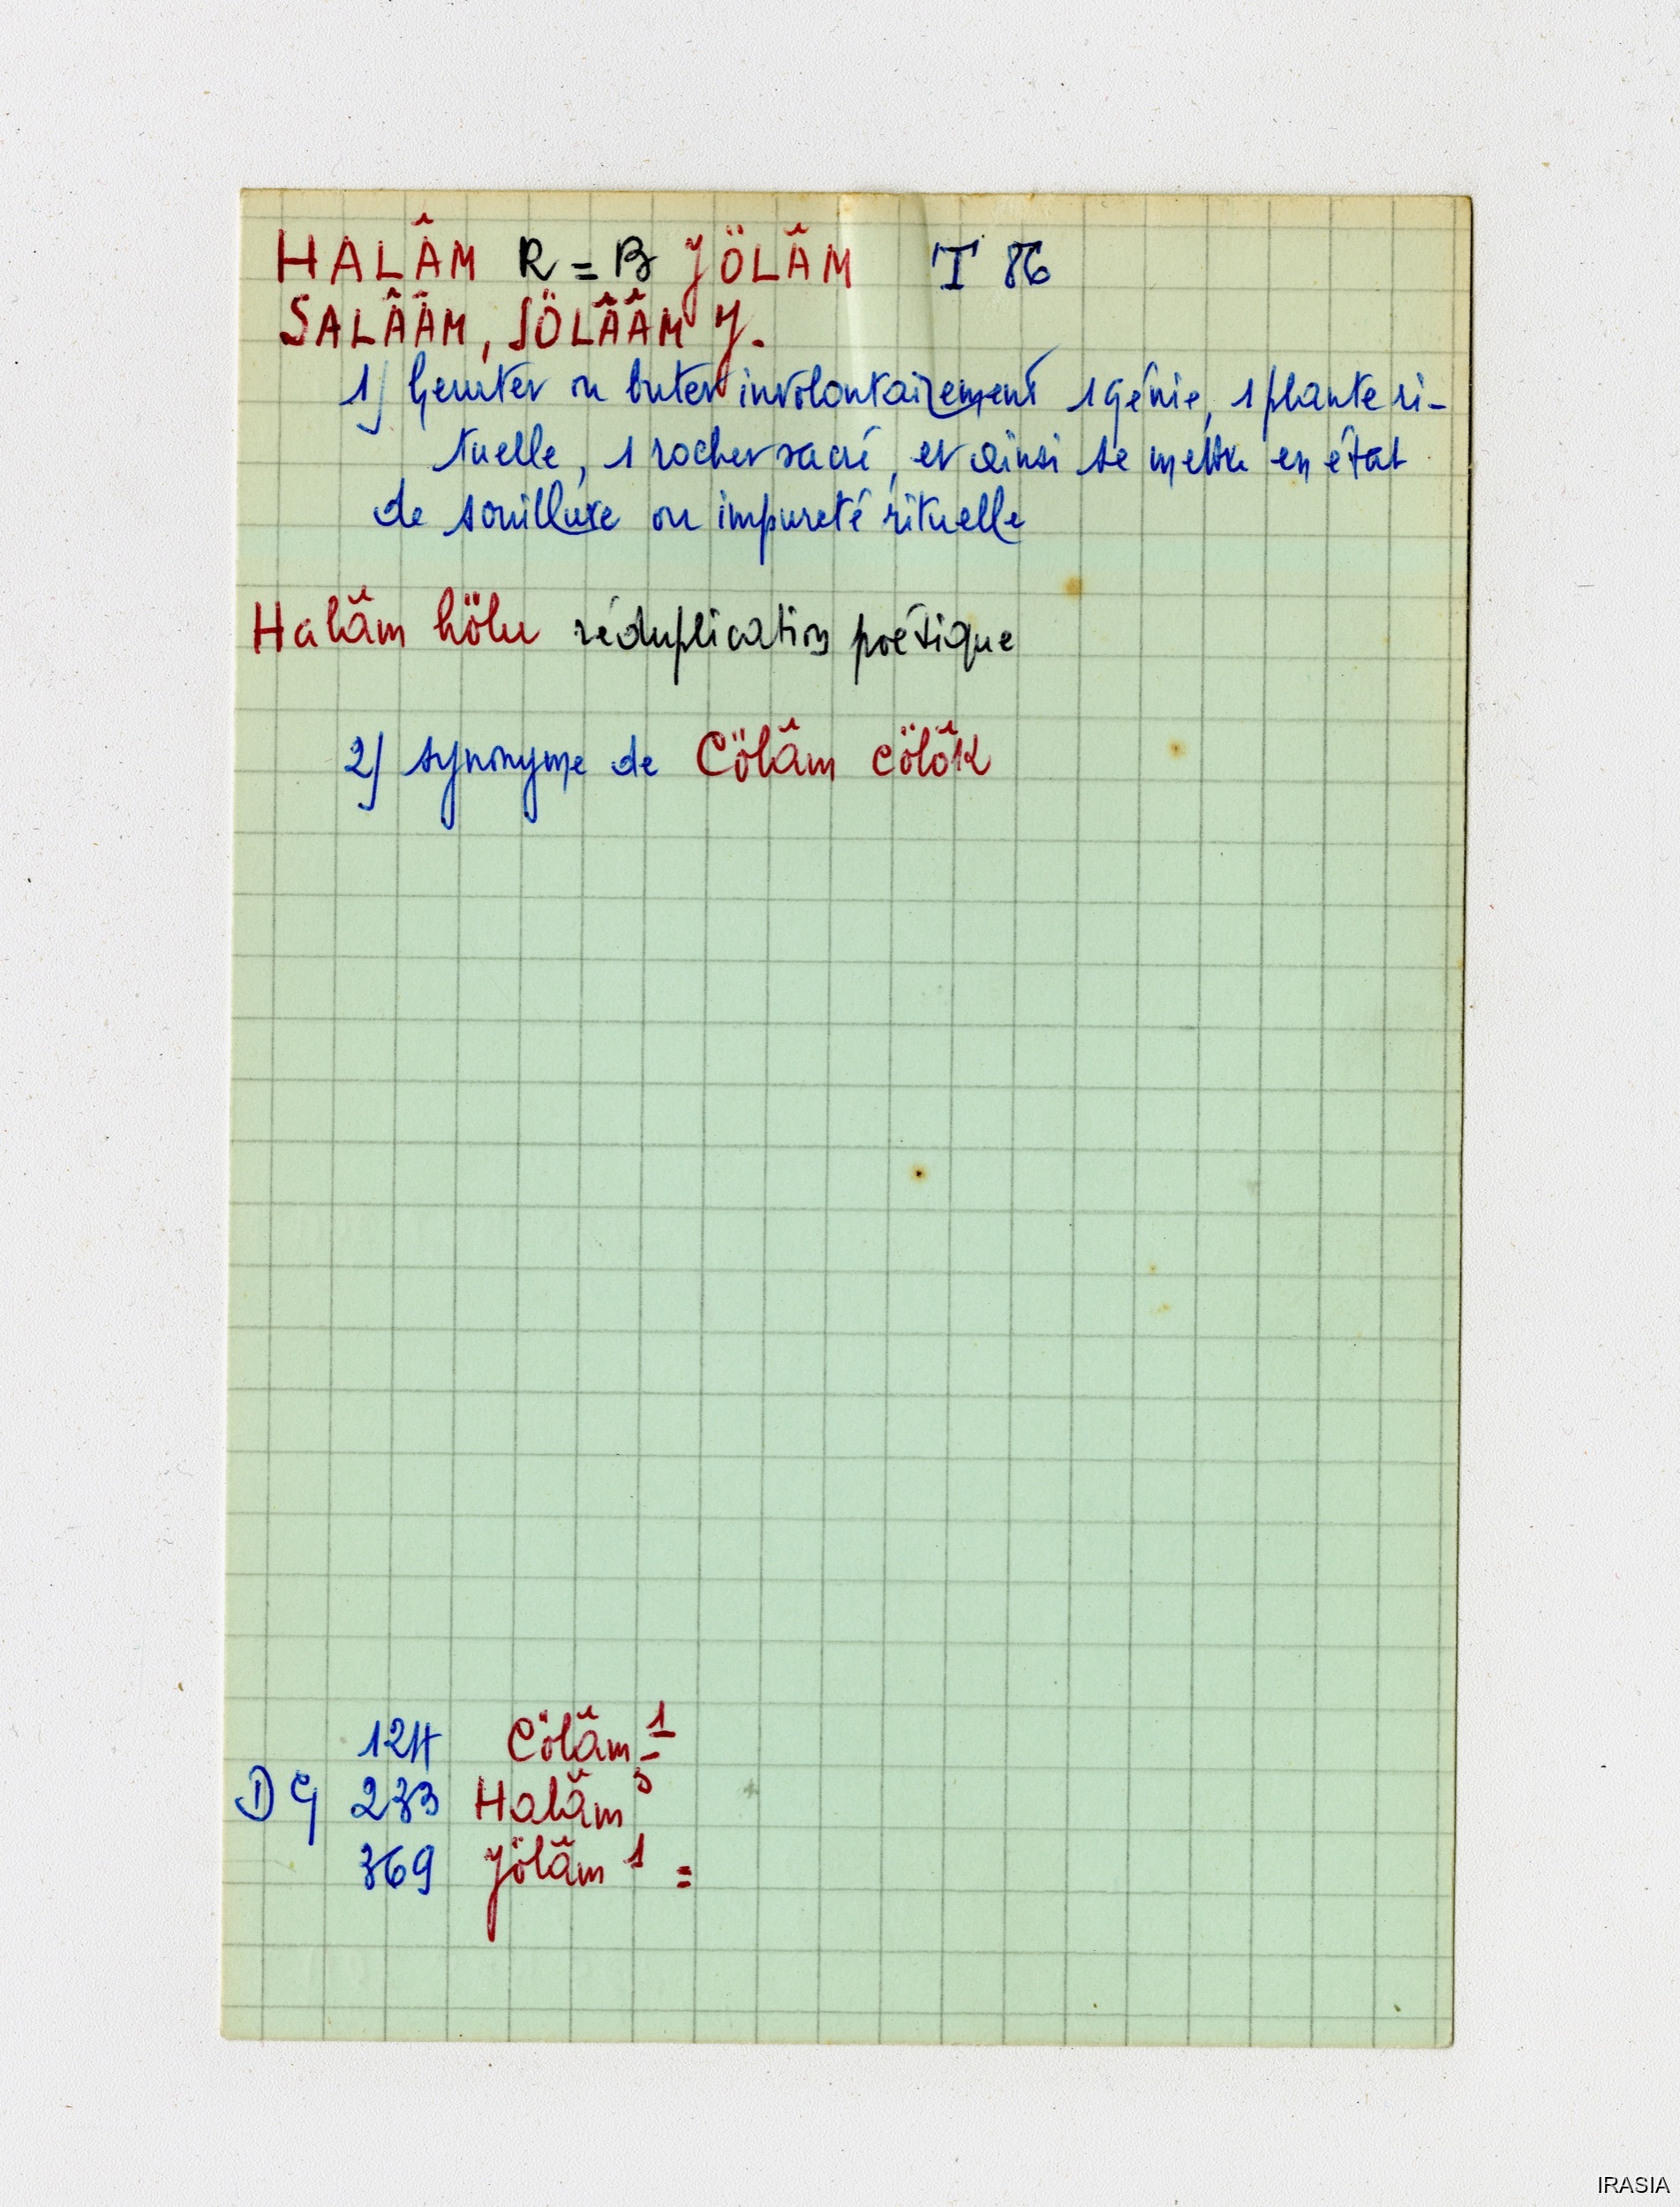 HALÂM R = B JÖLÂM T 86
SALÂÂM, SÖLÂÂM J.
1) heurter ou buter involontairement 1 génie, 1 plante ri-
tuelle, 1 rocher sacré, et ainsi se mettre en état
de souillure ou impureté rituelle
Halâm hölu réduplication poétique
2) synonyme de Cölâm cölök
124 Cölâm 1 =
DG 233 Halâm 3
369 Jölâm 1 =
IRASIA